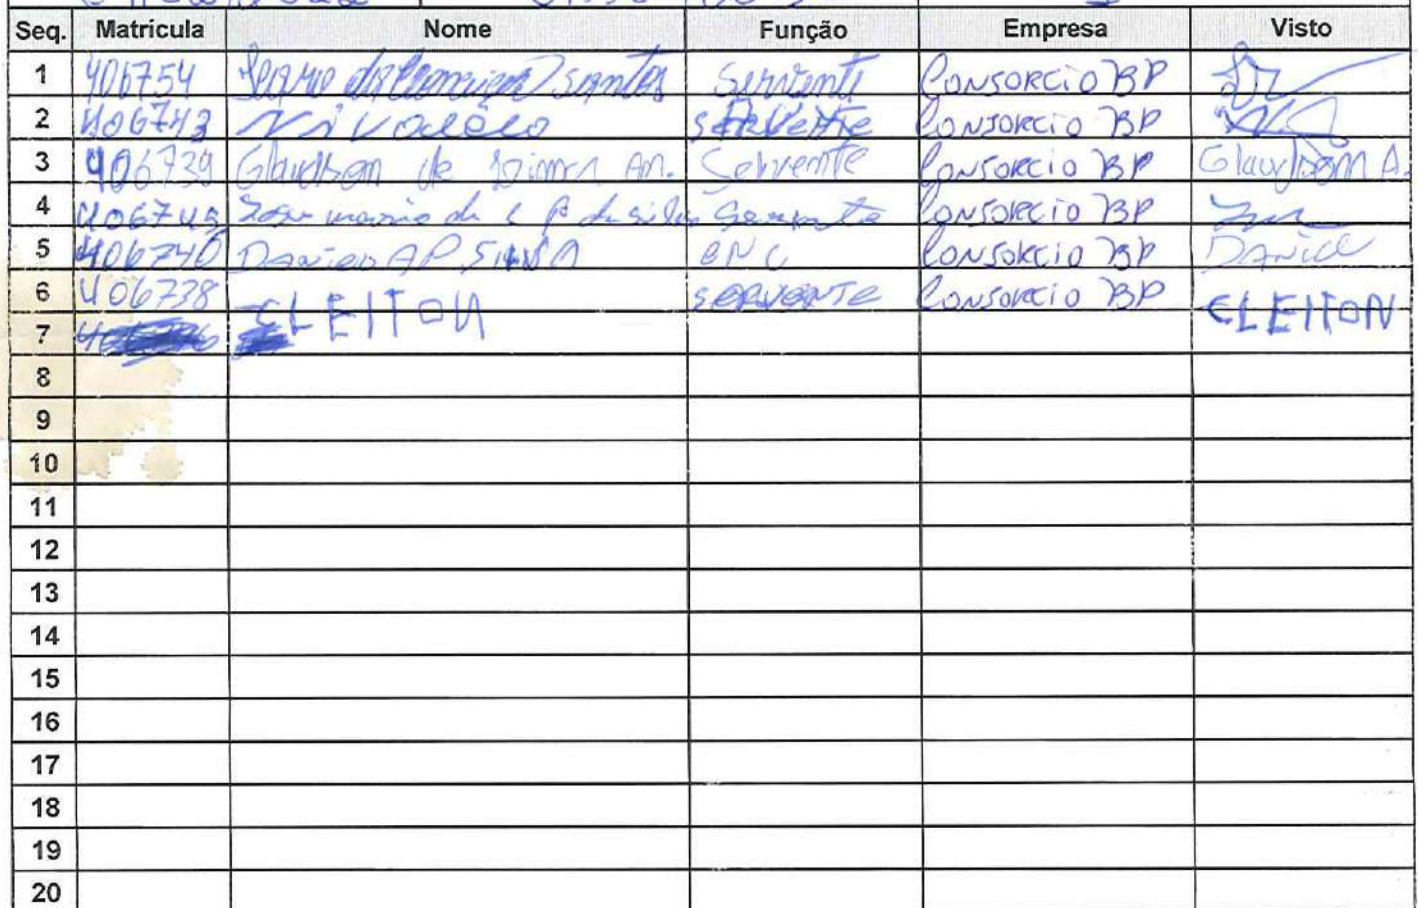 Seq. Matrícula Nome Função Empresa Visto
1 406754 santos Servente CONSORCIO BP
2 406743 Nivaldêlo servente CONSORCIO BP
3 406739 Glaudson de An. Servente CONSORCIO BP Glaudson A.
4 406745 José mario da silva Servente CONSORCIO BP
5 406740 Daniel AP SILVA ENC CONSORCIO BP Daniel
6 406738 CLEITON SERVENTE CONSORCIO BP CLEITON
7
8
9
10
11
12
13
14
15
16
17
18
19
20